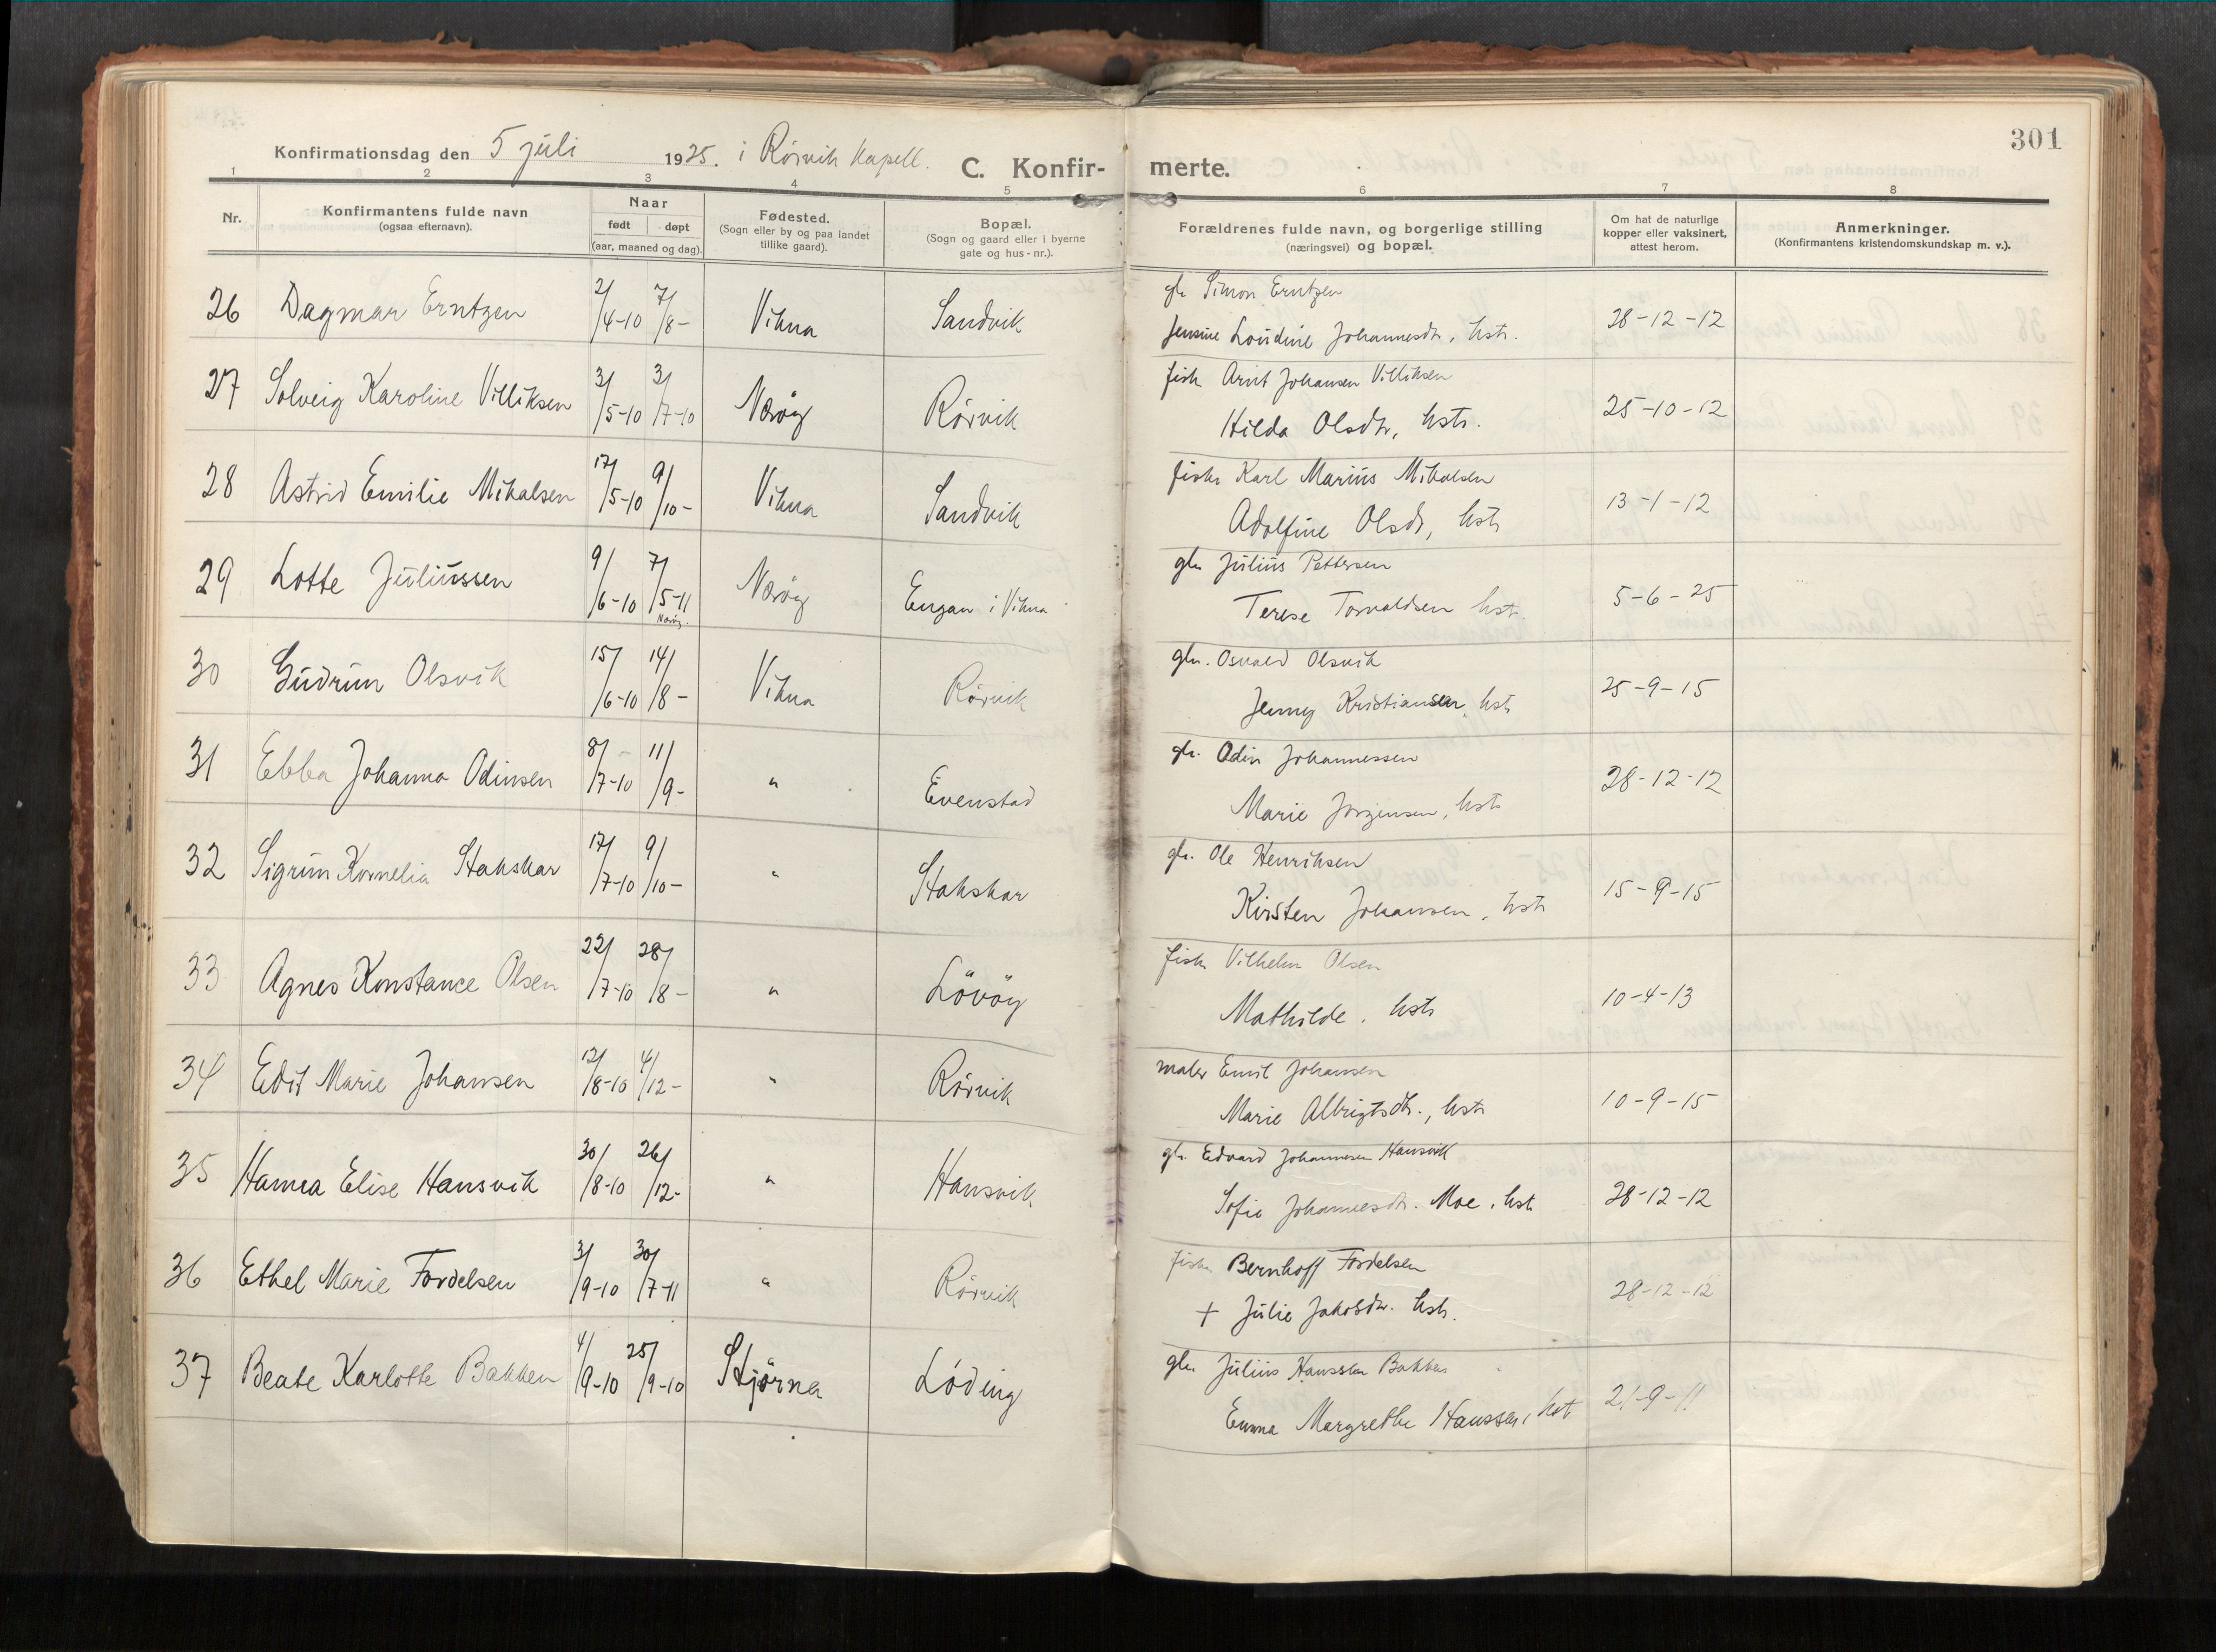 301
Konfirmationsdag den 5 juli 1925. i Rörvik kapell.
C. Konfir- merte.
1 2 3 4 5 6 7 8
Nr.
Konfirmantens fulde navn
(ogsaa efternavn).
Naar
født døpt
(aar, maaned og dag).
Fødested.
(Sogn eller by og paa landet
tillike gaard).
Bopæl.
(Sogn og gaard eller i byerne
gate og hus-nr.).
Forældrenes fulde navn, og borgerlige stilling
(næringsvei) og bopæl.
Om hat de naturlige
kopper eller vaksinert,
attest herom.
Anmerkninger.
(Konfirmantens kristendomskundskap m. v.).
26 Dagmar Erntzen 2/4-10 7/8- Vikna Sandvik gbr Simon Erntzen 28-12-12
Jensine Loudine Johannesdtr, hstr.
27 Solveig Karoline Villiksen 3/5-10 3/7-10 Nærøy Rörvik fisk Arnt Johansen Villiksen 25-10-12
Hilda Olsdtr, hstr.
28 Astrid Emilie Mikalsen 17/5-10 9/10- Vikna Sandvik fisk Karl Marius Mikalsen 13-1-12
Adolfine Olsdtr, hstr
29 Lotte Juliussen 9/6-10 7/5-11 Nærøy Engan i Vikna gbr Julius Pettersen 5-6-25
Nærøy.
Terese Torvaldsen hstr.
30 Gudrun Olsvik 15/6-10 14/8- Vikna Rörvik gbr. Osvald Olsvik 25-9-15
Jenny Kristiansen, hstr
31 Ebba Johanna Odinsen 8/7-10 11/9- " Evenstad gbr. Odin Johannessen 28-12-12
Marie Jörgensen, hstr
32 Sigrun Kornelia Stakskar 17/7-10 9/10- " Stakskar gbr. Ole Henriksen 15-9-15
Kirsten Johansen, hstr
33 Agnes Konstance Olsen 22/7-10 28/8- " Lövöy fisk Vilhelm Olsen 10-4-13
Mathilde, hstr
34 Edit Marie Johansen 12/8-10 4/12- " Rörvik maler Emil Johansen 10-9-15
Marie Albrigtsdtr., hstr
35 Hanna Elise Hansvik 30/8-10 26/12- " Hansvik gbr. Edvard Johannesen Hansvik 28-12-12
Sofie Johannesdtr. Moe, hstr
36 Ethel Marie Fordelsen 3/9-10 30/7-11 " Rörvik fisk Bernhoff Fordelsen 28-12-12
+ Julie Jakobsdtr. hstr.
37 Beate Karlotte Bakken 4/9-10 25/9-10 Stjörna Löding gbr Julius Hanssen Bakken 21-9-11
Emma Margrethe Hanssen, hstr